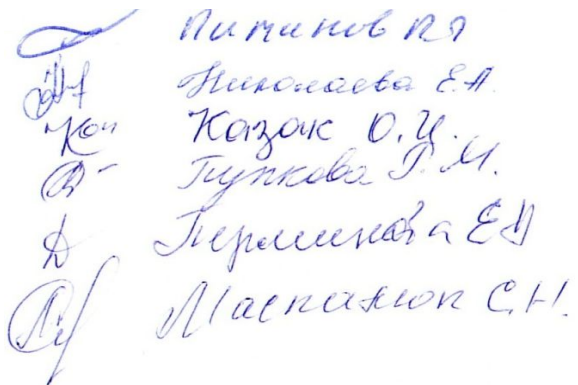 Пиманов П.Я
Николаева Е.А.
Казак О.И.
Пупкова Р.М.
Перминова ЕА
Маспанюк С.Н.